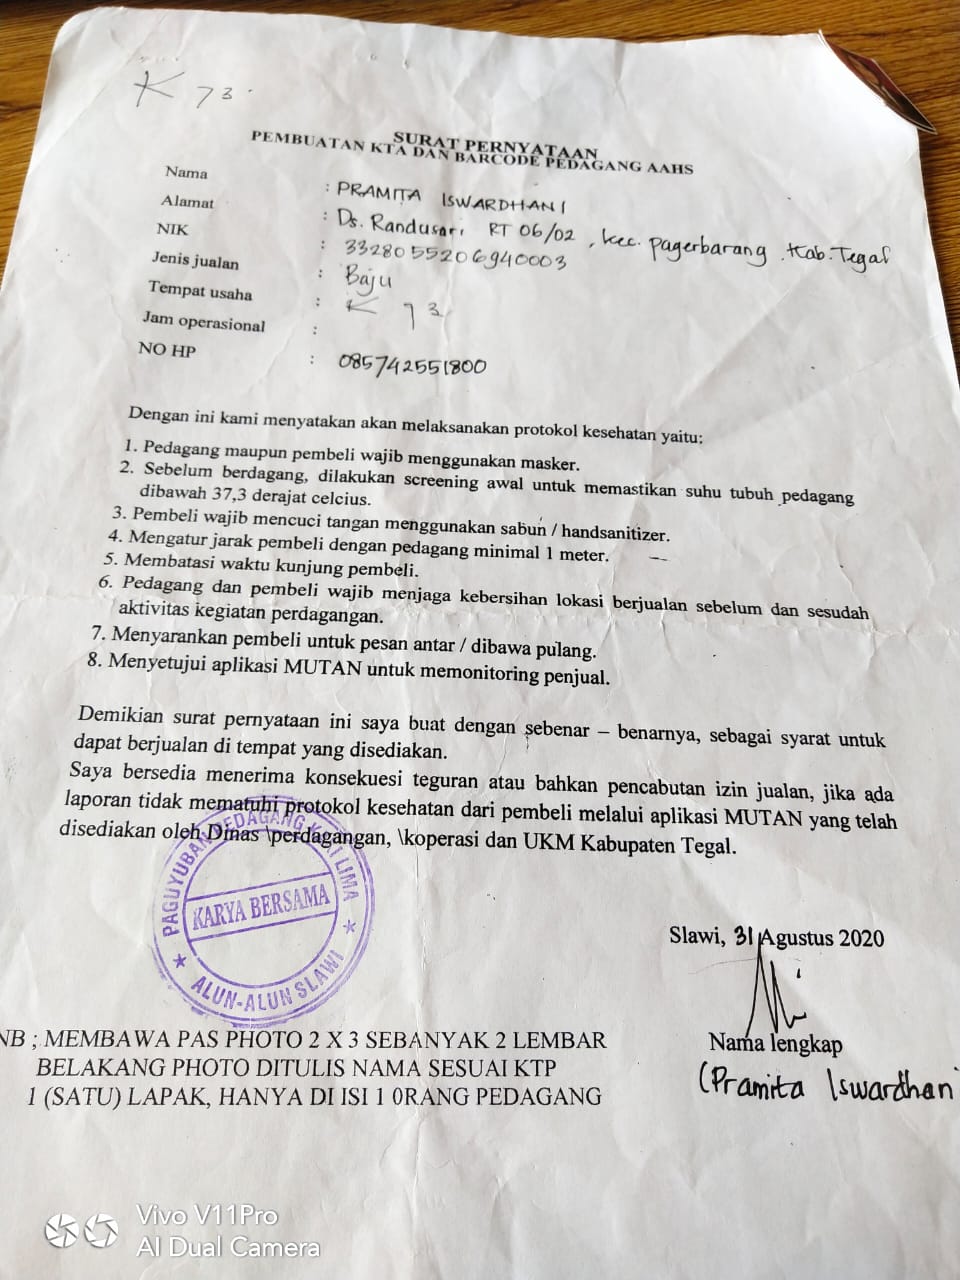 K 73.
SURAT PERNYATAAN
PEMBUATAN KTA DAN BARCODE PEDAGANG AAHS
Nama : PRAMITA ISWARDHANI
Alamat : Ds. Randusari RT 06/02, Kec. Pagerbarang. Kab. Tegal
NIK : 3328055206940003
Jenis jualan : Baju
Tempat usaha : K 73
Jam operasional :
NO HP : 085742551800
Dengan ini kami menyatakan akan melaksanakan protokol kesehatan yaitu:
1. Pedagang maupun pembeli wajib menggunakan masker.
2. Sebelum berdagang, dilakukan screening awal untuk memastikan suhu tubuh pedagang
dibawah 37,3 derajat celcius.
3. Pembeli wajib mencuci tangan menggunakan sabun / handsanitizer.
4. Mengatur jarak pembeli dengan pedagang minimal 1 meter.
5. Membatasi waktu kunjung pembeli.
6. Pedagang dan pembeli wajib menjaga kebersihan lokasi berjualan sebelum dan sesudah
aktivitas kegiatan perdagangan.
7. Menyarankan pembeli untuk pesan antar / dibawa pulang.
8. Menyetujui aplikasi MUTAN untuk memonitoring penjual.
Demikian surat pernyataan ini saya buat dengan sebenar – benarnya, sebagai syarat untuk
dapat berjualan di tempat yang disediakan.
Saya bersedia menerima konsekuesi teguran atau bahkan pencabutan izin jualan, jika ada
laporan tidak mematuhi protokol kesehatan dari pembeli melalui aplikasi MUTAN yang telah
disediakan oleh Dinas \perdagangan, \koperasi dan UKM Kabupaten Tegal.
PAGUYUBAN PEDAGANG KAKI LIMA
KARYA BERSAMA
ALUN-ALUN SLAWI
Slawi, 31 Agustus 2020
Nama lengkap
(Pramita Iswardhan
NB ; MEMBAWA PAS PHOTO 2 X 3 SEBANYAK 2 LEMBAR
BELAKANG PHOTO DITULIS NAMA SESUAI KTP
1 (SATU) LAPAK, HANYA DI ISI 1 0RANG PEDAGANG
Vivo V11Pro
AI Dual Camera